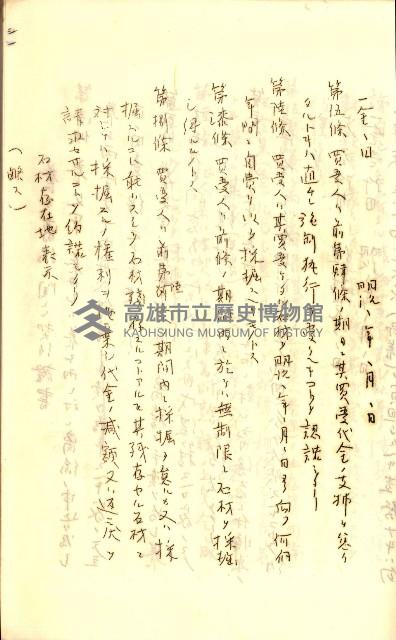 一金、、円 明治、、年、月、日
第伍條 買受人ハ前第肆條ノ期日ニ其買受代金ノ支拂ヲ怠リ
タルトキハ直チニ強制執行ヲ受クヘキコトヲ認諾シタリ
第陸條 買受人ハ其買受ケタル石材ヲ明治、年、月、日ヨリ向フ何個
年間ニ自費ヲ以テ採掘スヘキモノトス
第漆條 買受人ハ前條ノ期間内ニ於テハ無制限ニ石材ヲ採掘
シ得ルモノトス
第捌條 買受人ハ前第陸條ノ期間内ニ採掘ヲ怠ルカ又ハ採
掘スルコト能ハスシテ石材
其残存セル石材ニ
対シテハ採掘スルノ権利ヲ
代金ノ減額又ハ返戻ヲ
請求セサルコトヲ認諾シタリ
石材存在地表示
(畧ス)
高雄市立歷史博物館
KAOHSIUNG MUSEUM OF HISTORY